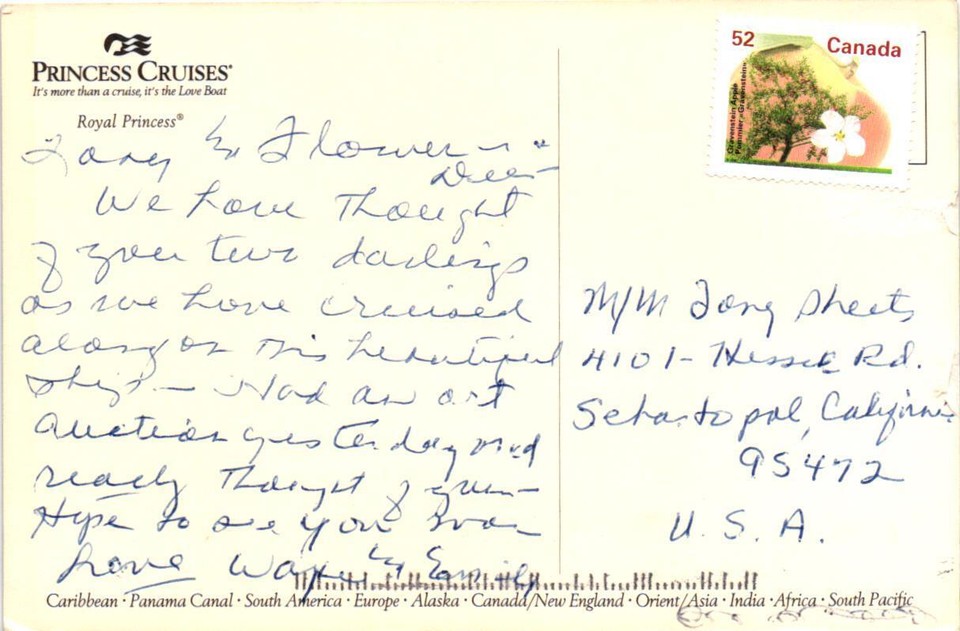 PRINCESS CRUISES®
It's more than a cruise, it's the Love Boat
Royal Princess®
& Flower
We have thought
of you two darlings
as we have cruised
along on this beautiful
ship — Had an art
auction yesterday and
really thought of you —
Hope to see you soon
Love &
Caribbean · Panama Canal · South America · Europe · Alaska · Canada/New England · Orient/Asia · India · Africa · South Pacific
52
Canada
Gravenstein Apple
Pommier «Gravenstein»
M/M Sheets
4101 - Hessel Rd.
Sebastopol, California
95472
U.S.A.